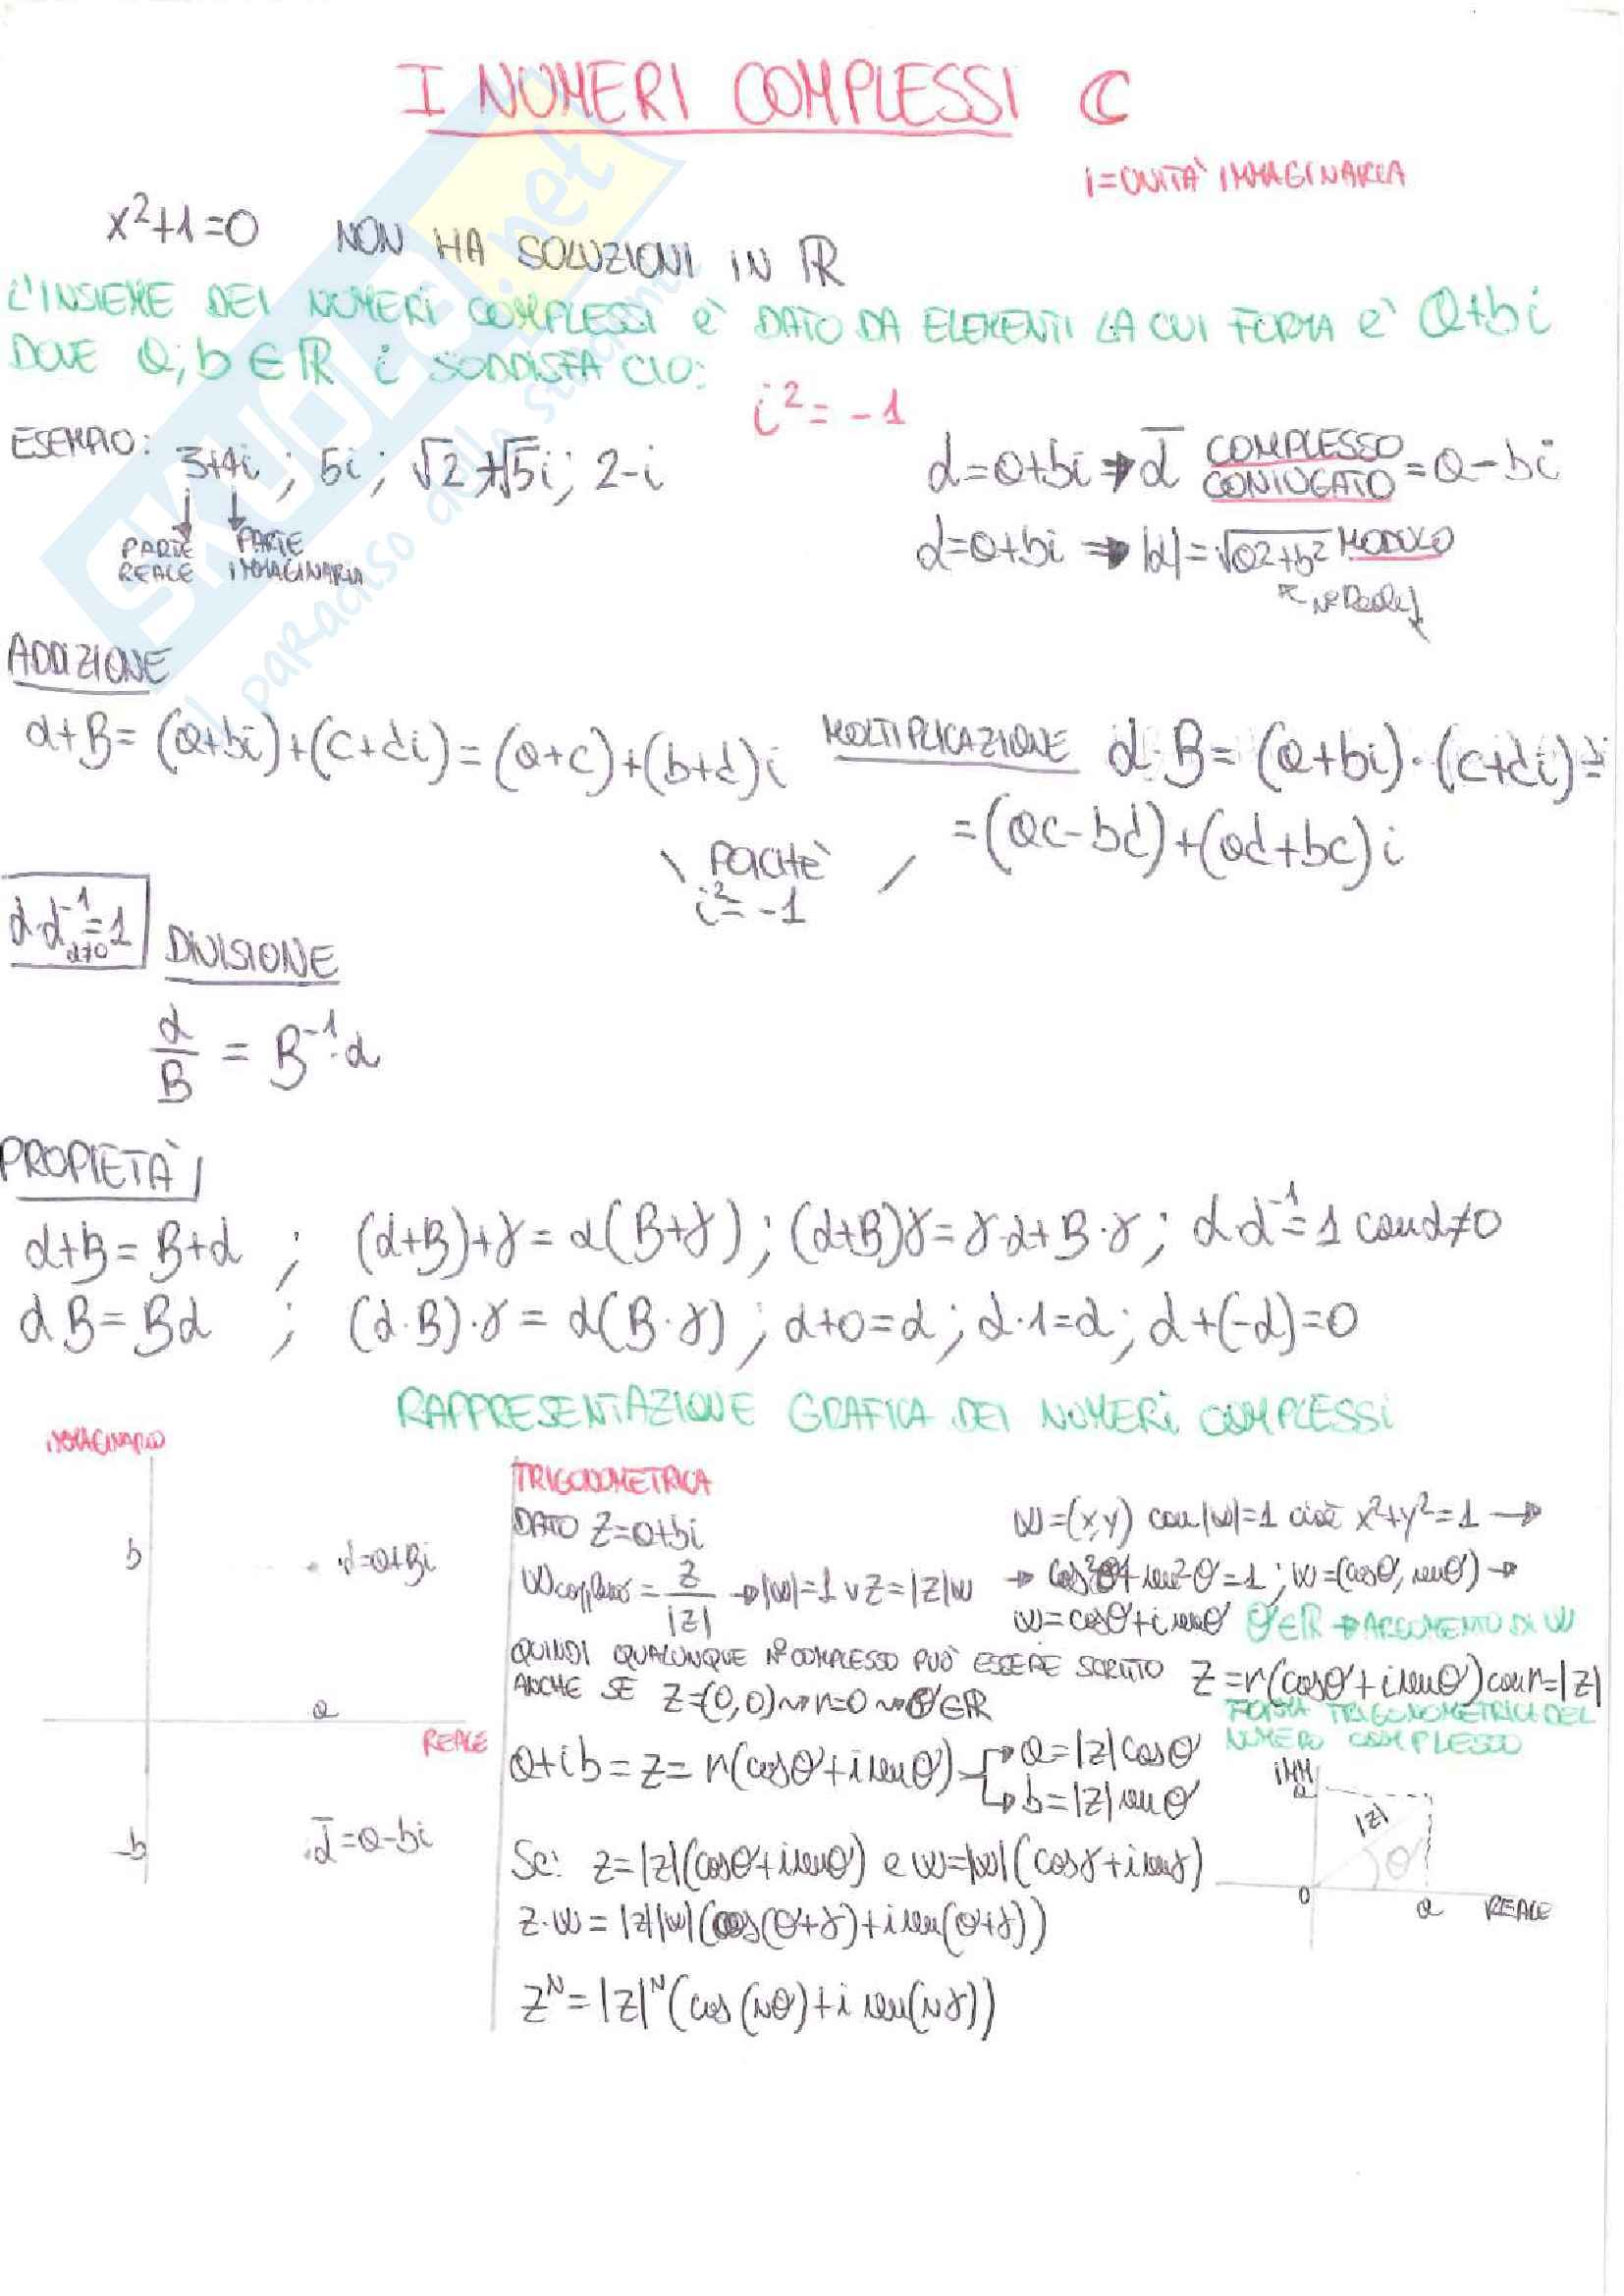 I NUMERI COMPLESSI ℂ
i = UNITA' IMMAGINARIA
x²+1=0 NON HA SOLUZIONI IN ℝ
L'INSIEME DEI NUMERI COMPLESSI è DATO DA ELEMENTI LA CUI FORMA è a+bi
DOVE a,b ∈ ℝ i SODDISFA CIO:
i² = -1
ESEMPIO: 3+4i ; 5i ; √2+√5i ; 2-i
PARTE REALE
PARTE IMMAGINARIA
α=a+bi → ᾱ COMPLESSO CONIUGATO = a-bi
α=a+bi → |α|=√a²+b² MODULO
N° Reale
ADDIZIONE
α+B = (a+bi)+(c+di) = (a+c)+(b+d)i
MOLTIPLICAZIONE α·B = (a+bi)·(c+di) =
= (ac-bd)+(ad+bc)i
\ PERCHÈ /
i²=-1
α·α⁻¹=1
α≠0
DIVISIONE
α/B = B⁻¹·α
PROPIETÀ
α+B=B+α ; (α+B)+γ = α(B+γ) ; (α+B)γ = γ·α+B·γ ; α·α⁻¹=1 con α≠0
αB=Bα ; (α·B)·γ = α(B·γ) ; α+0=α ; α·1=α ; α+(-α)=0
RAPPRESENTAZIONE GRAFICA DEI NUMERI COMPLESSI
IMMAGINARIO
b
α=a+Bi
a
REALE
-b
ᾱ=a-bi
TRIGONOMETRICA
DATO z=a+bi
w complesso = z/|z| → |w|=1 v z=|z|w
w=(x,y) con |w|=1 cioè x²+y²=1 →
→ cos²θ+sen²θ=1 ; w=(cosθ, senθ) →
w=cosθ+i senθ θ∈ℝ → ARGOMENTO DI W
QUINDI QUALUNQUE N° COMPLESSO PUÒ ESSERE SCRITTO z=r(cosθ+i senθ) con r=|z|
ANCHE SE z=(0,0) → r=0 → θ∈ℝ
FORMA TRIGONOMETRICA DEL
NUMERO COMPLESSO
a+ib = z = r(cosθ+i senθ)
a=|z|cosθ
b=|z|senθ
Se: z=|z|(cosθ+i senθ) e w=|w|(cosγ+i senγ)
z·w = |z||w|(cos(θ+γ)+i sen(θ+γ))
zᴺ = |z|ᴺ(cos(Nθ)+i sen(Nγ))
IMM
a
|z|
θ
0
a
REALE
SKUOLA.net
il paradiso dello studente